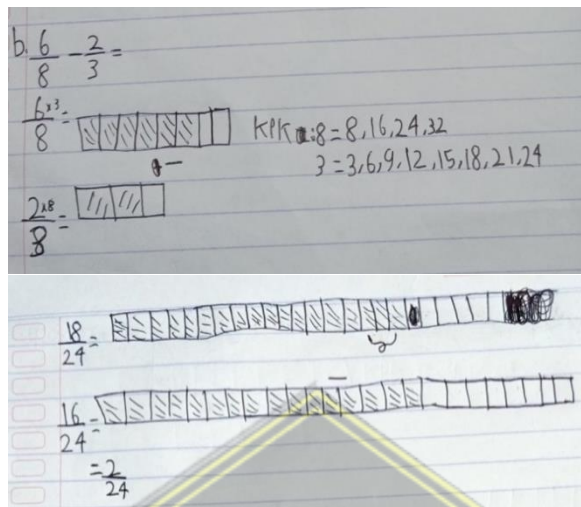 b. 6/8 - 2/3 =
6×3/8 =
KPK : 8 = 8, 16, 24, 32
3 = 3, 6, 9, 12, 15, 18, 21, 24
-
2×8/3 =
18/24 =
2
-
16/24 =
= 2/24